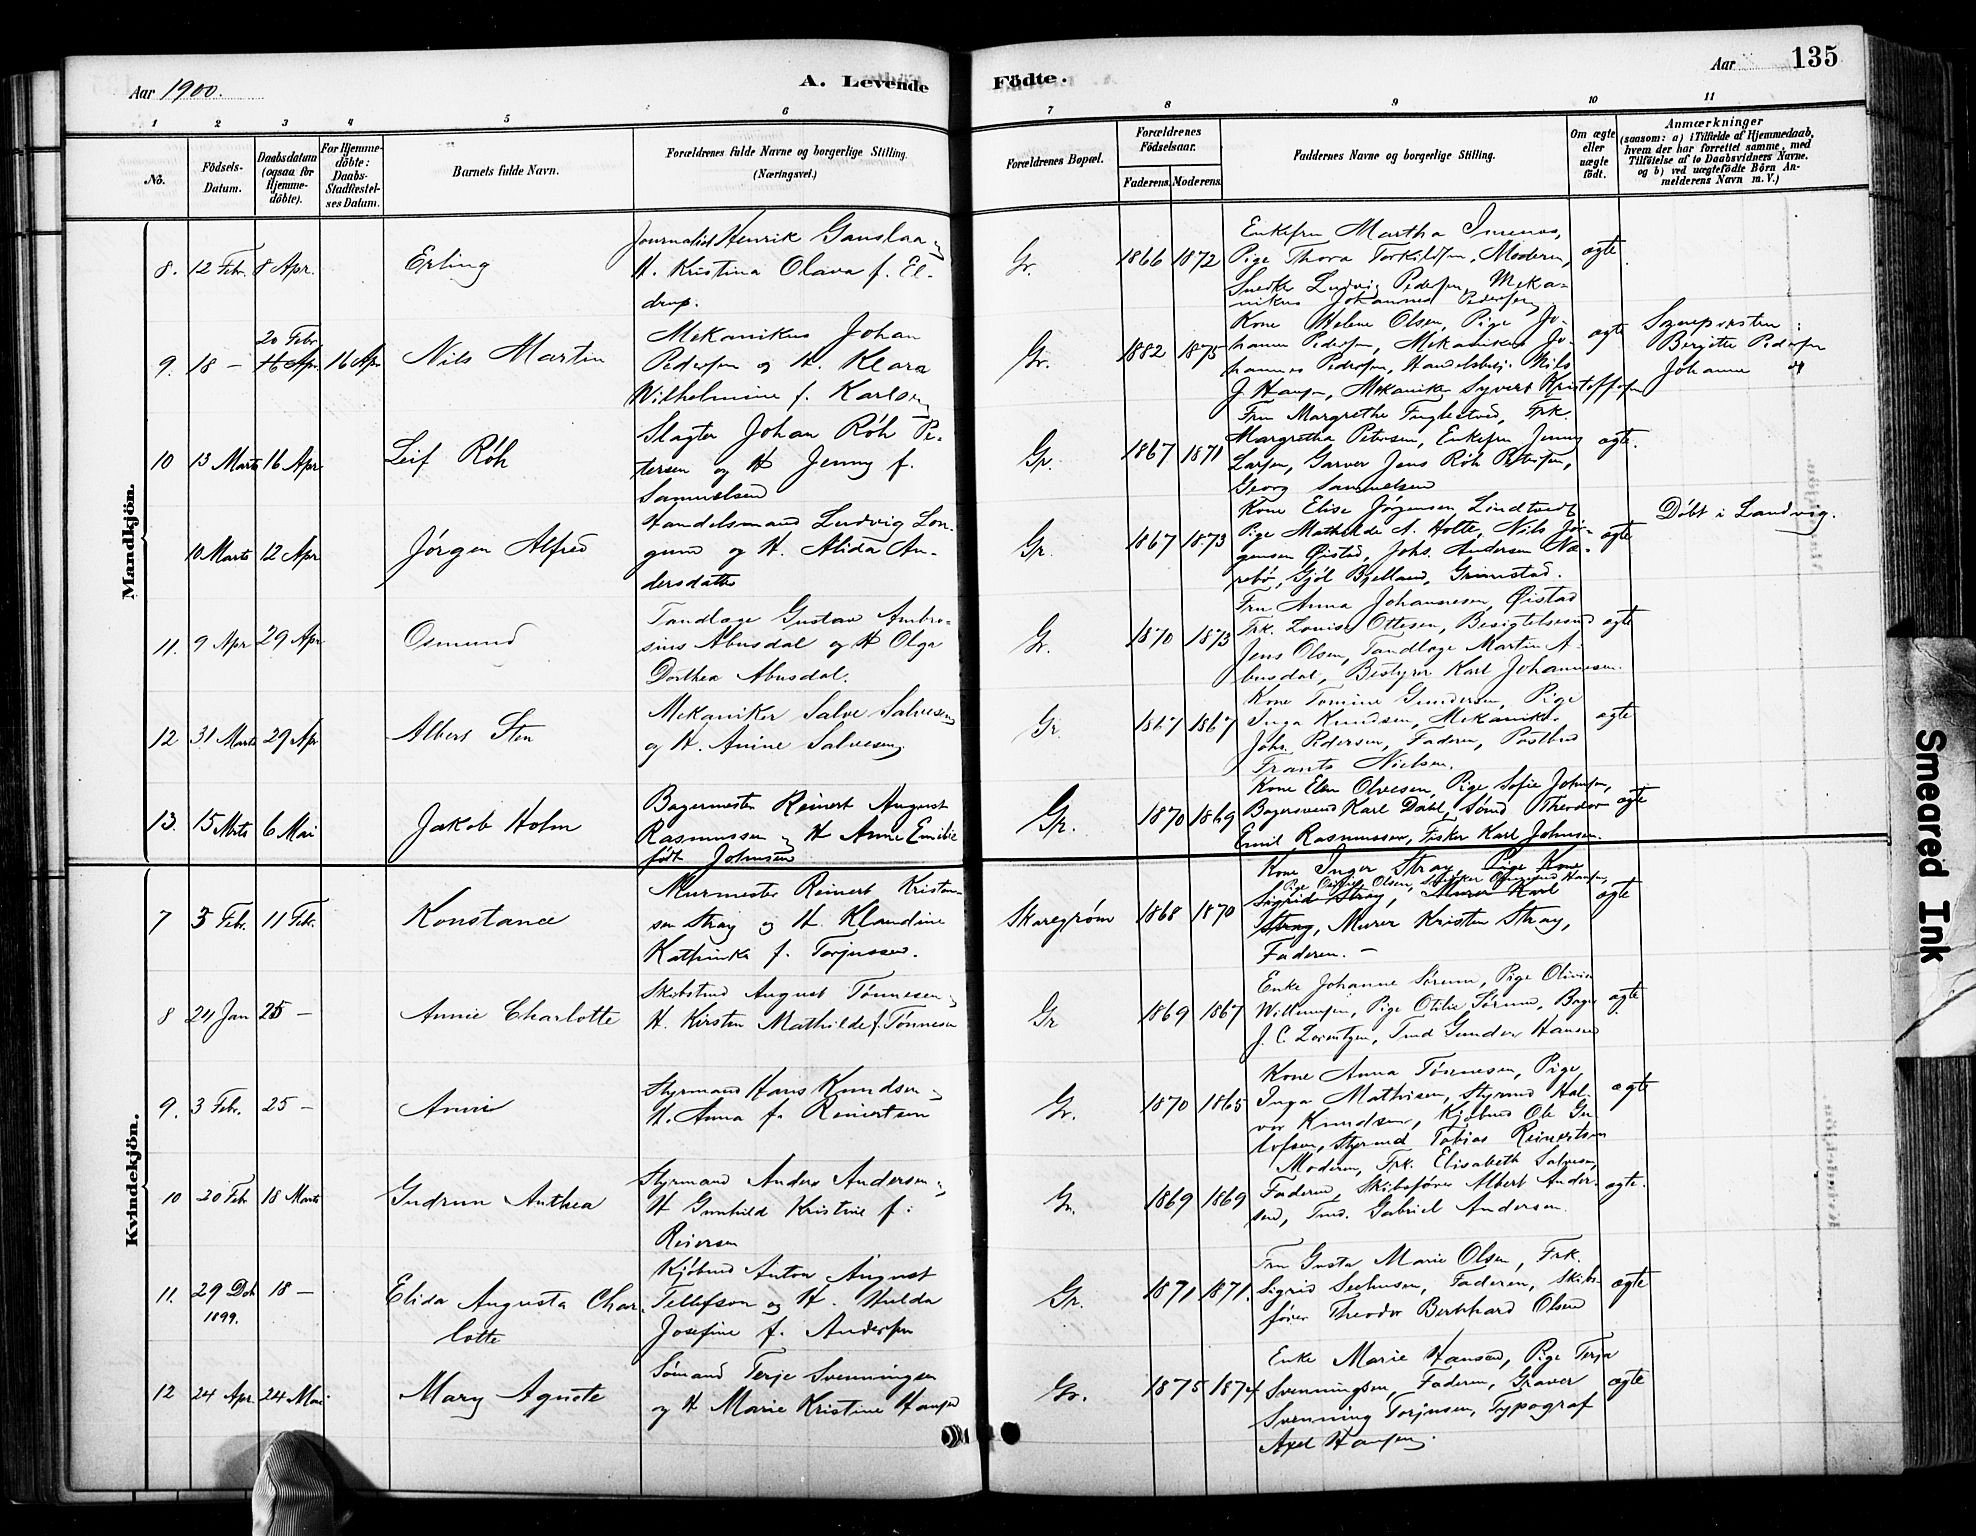 Aar 1900.
A. Levende
Födte.
Aar
135
1 2 3 4 5 6 7 8 9 10 11
No.
Födsels-
Datum.
Daabsdatum
(ogsaa for
Hjemme-
döbte).
For Hjemme-
döbte:
Daabs-
Stadfæstel-
ses Datum.
Barnets fulde Navn.
Forældrenes fulde Navne og borgerlige Stilling.
(Næringsvei.)
Forældrenes Bopæl.
Forældrenes
Födselsaar.
Faderens. Moderens.
Faddernes Navne og borgerlige Stilling.
Om ægte
eller
uægte
födt.
Anmærkninger
(saasom: a) i Tilfælde af Hjemmedaab,
hvem der har forrettet samme, med
Tilföielse af to Daabsvidners Navne.
og b) ved uægtefödte Börn An-
melderens Navn m. V.)
Mandkjön.
8. 12 Febr. 8 Apr.
Erling
Journalist Henrik Gauslaa og
H. Kristina Olava f. El-
drup.
Gr.
1866 1872
Enkefru Martha
Pige Thora Torkildsen, Moderen,
Snedker Ludvig Pedersen, Meka-
nikus Johannes Pedersen
ægte
9. 18 –
20 Febr
16 Apr.
16 Apr
Nils Martin
Mekanikus Johan
Pedersen og H. Klara
Wilhelmine f. Karlsen
Gr.
1882 1875
Kone Helene Olsen, Pige Jo-
hanna Pedersen, Mekanikus Jo-
hannes Pedersen, Handelsbetj. Nils
J. Hansen, Mekaniker Syvert Kristoffersen
ægte
Sognepresten:
Berjitte Pedersen
Johanne
10 13 Marts 16 Apr
Leif Röh
Slagter Johan Röh Pe-
tersen og H Jenny f.
Samuelsen
Gr.
1867 1871
Fru Margrethe Fuglestved, Frk.
Margretha Petersen, Enkefru Jenny
Larsen, Garver Jens Röh Petersen,
Georg Samuelsen
ægte.
10 Marts 12 Apr
Jörgen Alfred
Handelsmand Ludvig Lon-
gum og H. Alida An-
dersdatter
Gr.
1867 1873
Kone Elise Jörgensen, Lindtveit
Pige Mathilde A. Holte, Nils Jör-
gensen Öistad, Johs. Andersen Næ-
rebö, Gjöl Bjelland, Grimstad.
ægte
Döbt i Landvig.
11. 9 Apr 29 Apr
Osmund
Tandlæge Gustav Ambro-
sius Abusdal og H Olga
Dorthea Abusdal.
Gr.
1870 1873
Fru Anna Johannesen, Öistad
Frk. Louise Ottesen, Besigtelsesmd
Jens Olsen, Tandlæge Martin A-
busdal, Bestyrer Karl Johannesen.
ægte
12 31 Marts 29 Apr
Albert Sten
Mekaniker Salve Salvesen
og H. Anine Salvesen.
Gr.
1867 1867
Kone Tomine Gundersen, Pige
Inga Knudsen, Mekaniker
Johs. Pedersen, Faderen, Postbud
Frants Nielsen.
ægte
13. 15 Mrts 6 Mai
Jakob Holm
Bagermester Reinert August
Rasmussen og H Anne Emilie
födt Johnsen
Gr.
1870 1869
Kone Elen Olvesen, Pige Sofie Johnsen,
Bagersvend Karl Dahl, Sömd Theodor
Emil Rasmussen, Fisker Karl Johnsen.
ægte
Kvindekjön.
7 3 Febr. 11 Febr.
Konstance
Murmester Reinert Kristen-
sen Stray og H. Klaudine
Kathinka f. Torjussen.
Skaregröm
1868 1870
Kone Inger Stray, Pige Kone
Pige Olsen, Hansen,
Sigrid Stray, Murer Karl
Stray, Murer Kristen Stray,
Faderen. –
ægte
8 24 Jan 25 –
Annie Charlotte
Skibstmd August Tönnesen og
H. Kirsten Mathilde f. Tönnesen
Gr
1869 1867
Enke Johanne Sörensen, Pige Olivia
Willumsen, Pige Otilie Sörensen, Bager
J. C. Lorentzen, Tmd Gunder Hansen
ægte
9. 3 Febr. 25 –
Annie
Styrmand Hans Knudsen og
H. Anna f. Reinertsen
Gr.
1870 1865
Kone Anna Tönnesen, Pige
Inga Mathisen, Styrmd Hal-
vor Knudsen, Kjöbmd Ole Gu-
lofsen, Styrmd Tobias Reinertsen
ægte
10 20 Febr 18 Marts
Gudrun Anthea
Styrmand Anders Andersen og
H Gunhild Kristine f.
Reiersen
Gr.
1869 1869
Moderen, Frk. Elisabeth Salvesen,
Faderen, Skibsförer Albert Ander-
sen, Tmd. Gabriel Andersen.
ægte.
11. 29 Dcb 18 –
1899.
Elida Augusta Char-
lotte
Kjöbmd Anton August
Tellefsen og H. Hulda
Josefine f. Andersen
Gr.
1871 1871.
Fru Gusta Marie Olsen, Frk.
Sigrid Seehusen, Faderen, Skibs-
förer Theodor Bernhard Olsen
ægte
12 24 Apr. 24 Mai
Mary Agnete
Sömand Terje Svenningsen
og H Marie Kristine Hansen
Gr.
1875 1874
Enke Marie Hansen, Pige Terja
Svenningsen, Faderen, Graver
Svenning Torjusen, Typograf
Axel Hansen.
ægte
Smeared Ink